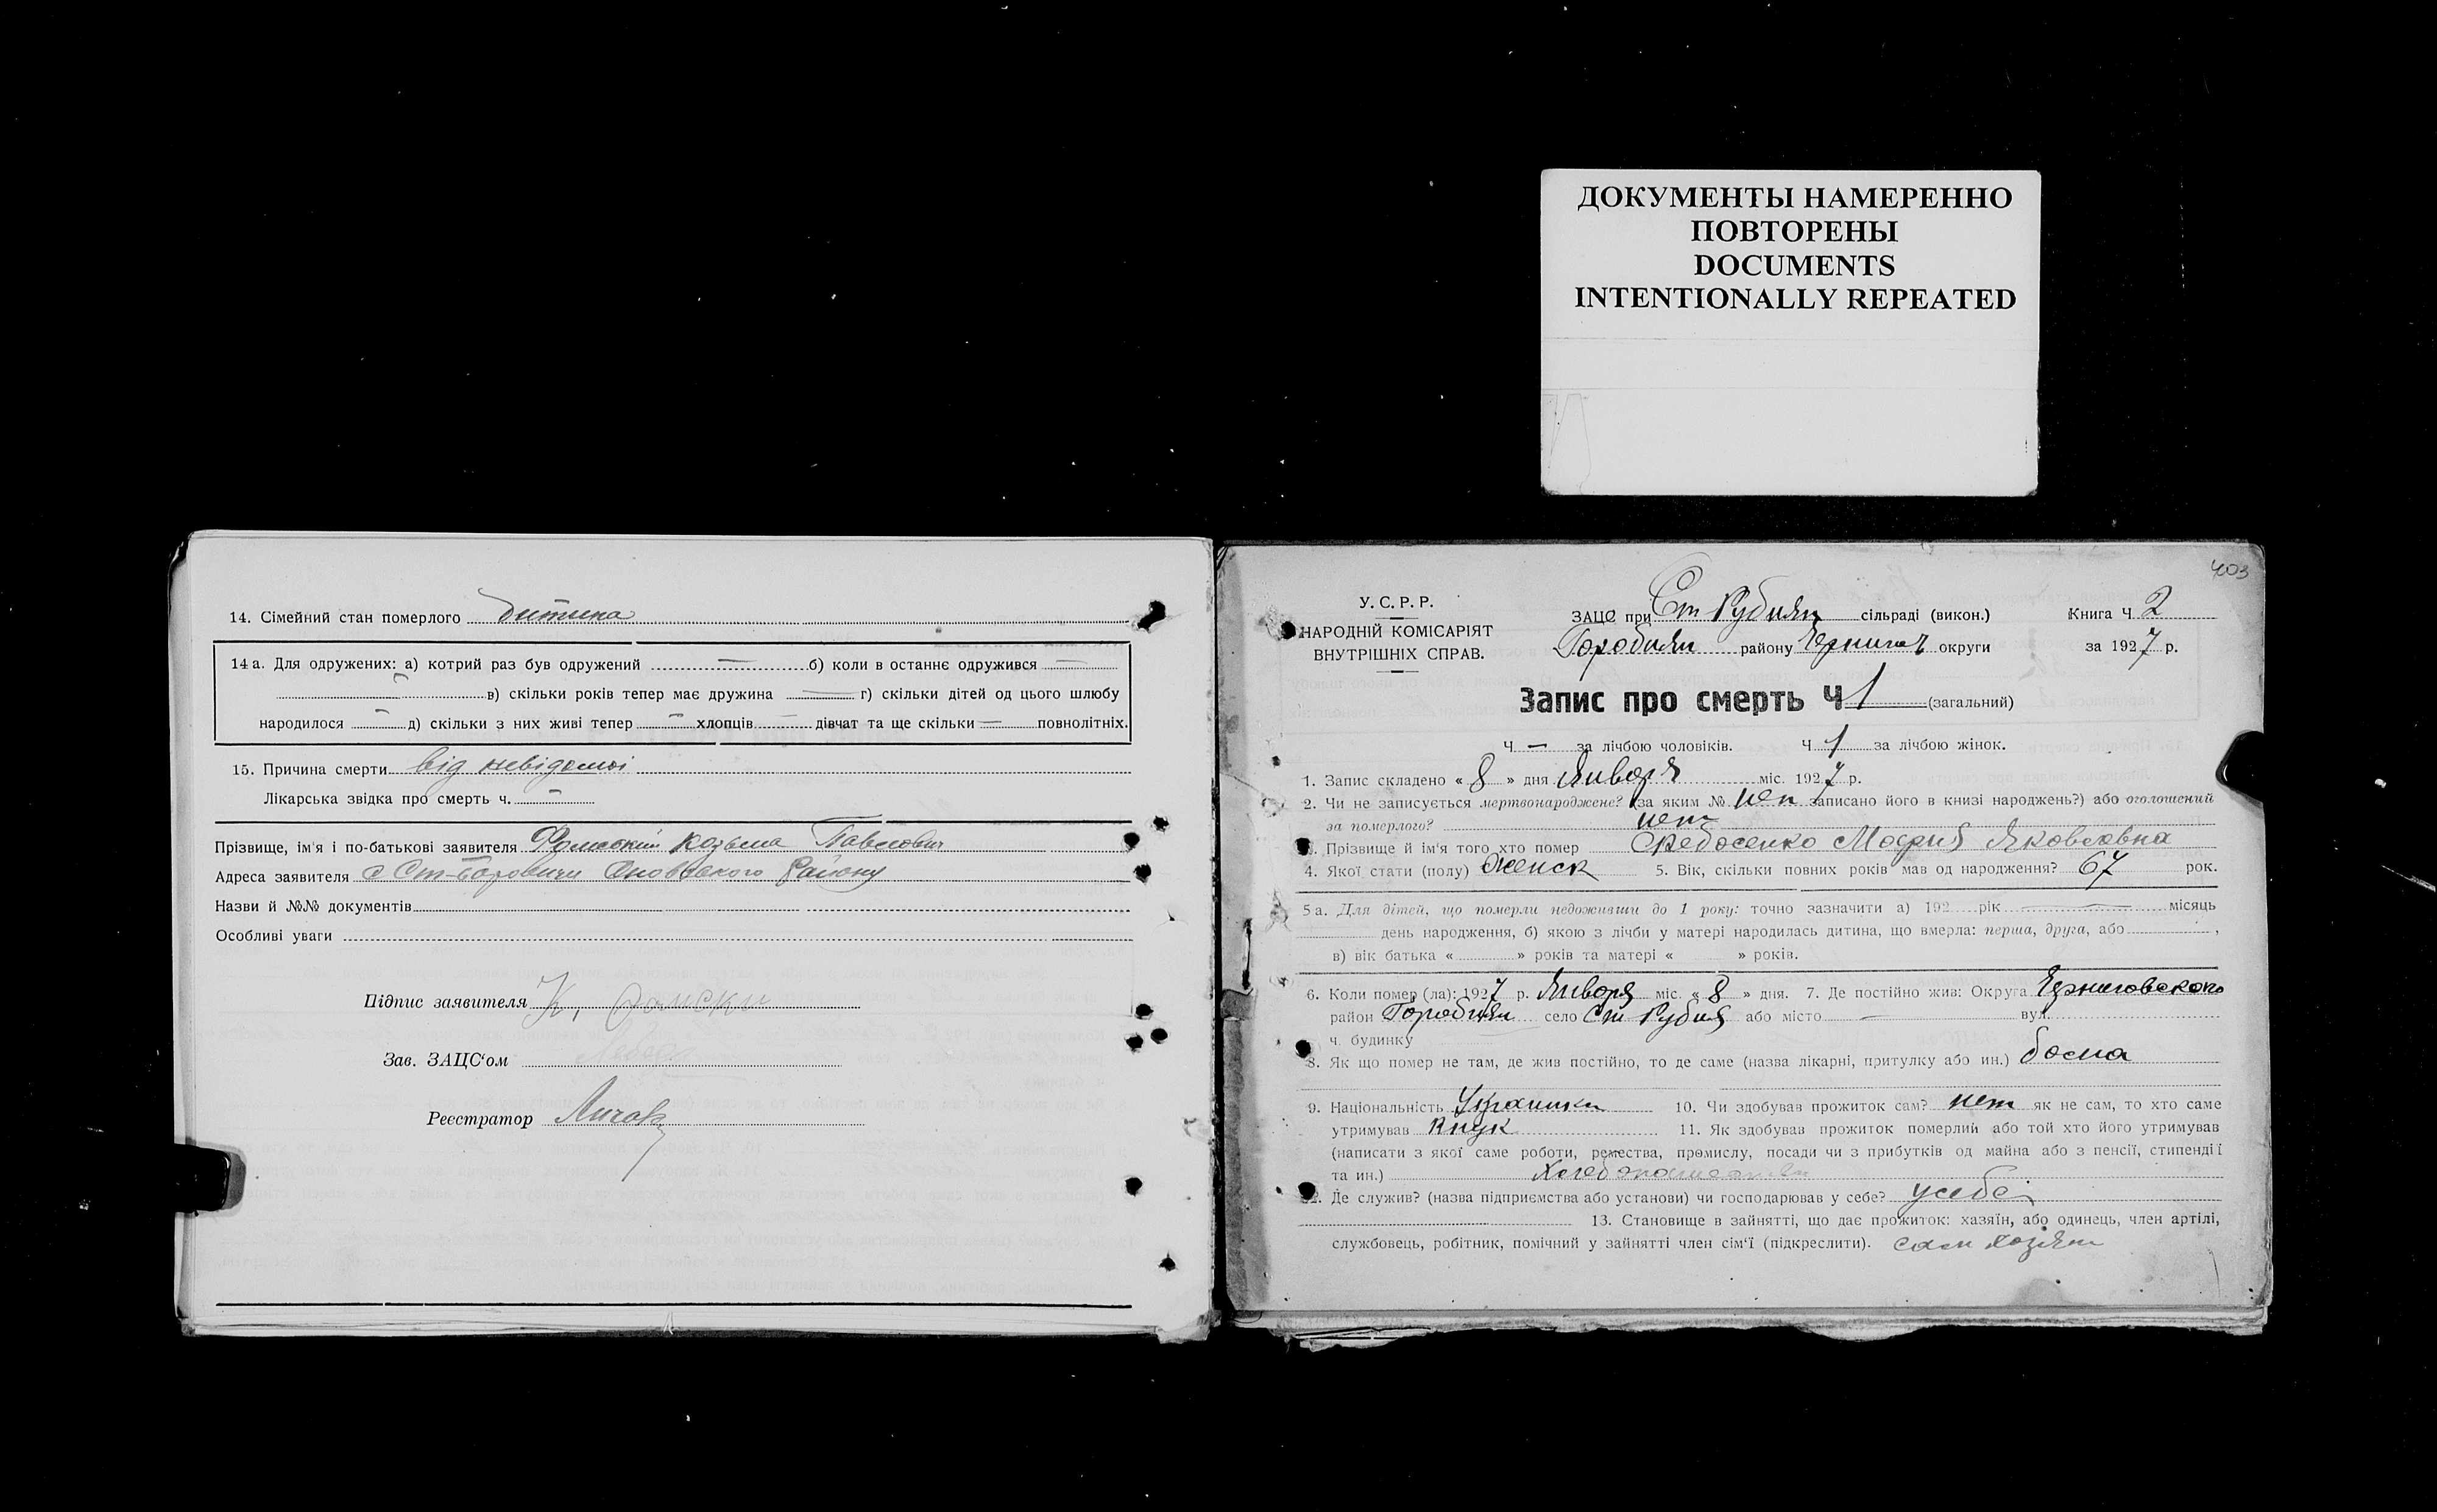 ДОКУМЕНТЫ НАМЕРЕННО
ПОВТОРЕНЫ
DOCUMENTS
INTENTIONALLY REPEATED
14. Сімейний стан померлого дитина
14а. Для одружених: а) котрий раз був одружений — б) коли в останнє одружився —
— в) скільки років тепер має дружина — г) скільки дітей од цього шлюбу
народилося — д) скільки з них живі тепер — хлопців — дівчат та ще скільки — повнолітніх.
15. Причина смерти від невідомоі
Лікарська звідка про смерть ч. —
Прізвище, ім'я і по-батькові заявителя Козьма Павлович
Адреса заявителя с Ст-Боровичи Району
Назви й №№ документів
Особливі уваги
Підпис заявителя К,
Зав. ЗАЦС'ом
Реєстратор
403
У. С. Р. Р.
НАРОДНІЙ КОМІСАРІЯТ
ВНУТРІШНІХ СПРАВ.
ЗАЦС при Ст Рубиян сільраді (викон.)
Городнян району Черниговс округи
Книга Ч. 2
за 1927 р.
Запис про смерть Ч 1 (загальний)
Ч — за лічбою чоловіків. Ч 1 за лічбою жінок.
1. Запис складено « 8 » дня Января міс. 1927 р.
2. Чи не записується мертвонароджене? (за яким № нет записано його в книзі народжень?) або оголошений
за померлого? нет
3. Прізвище й ім'я того хто помер Мария Яковлевна
4. Якої стати (полу) Женск 5. Вік, скільки повних років мав од народження? 67 рок.
5а. Для дітей, що померли недоживши до 1 року: точно зазначити а) 192 рік — місяць
день народження, б) якою з лічби у матері народилась дитина, що вмерла: перша, друга, або ,
в) вік батька « » років та матері « » років.
6. Коли помер (ла): 1927 р. Января міс. « 8 » дня. 7. Де постійно жив: Округа Черниговского
район Городнян село Ст Рубня або місто — вул.
ч. будинку
8. Як що помер не там, де жив постійно, то де саме (назва лікарні, притулку або ин.) дома
9. Національність Украинка 10. Чи здобував прожиток сам? нет як не сам, то хто саме
утримував внук 11. Як здобував прожиток померлий або той хто його утримував
(написати з якої саме роботи, ремества, промислу, посади чи з прибутків од майна або з пенсії, стипендії
та ин.)
12. Де служив? (назва підприємства або установи) чи господарював у себе? у себе
13. Становище в зайнятті, що дає прожиток: хазяїн, або одинець, член артілі,
службовець, робітник, помічний у зайнятті член сім'ї (підкреслити). сам хозяин